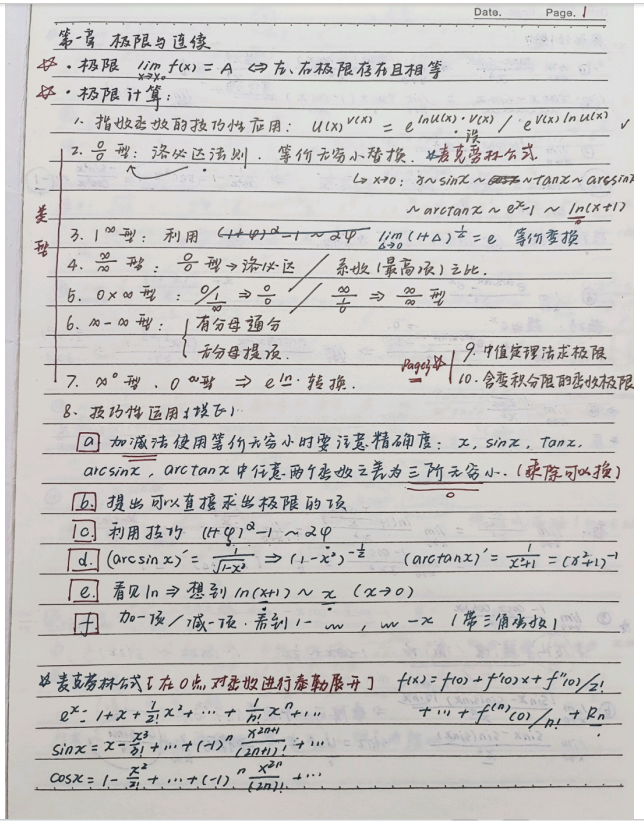 Date. Page. 1
第一章 极限与连续
☆ · 极限 lim x→x₀ f(x) = A ⇔ 左、右极限存在且相等
☆ · 极限计算:
1. 指数函数的技巧性应用: u(x)^v(x) = e^lnu(x)·v(x) / e^v(x)lnu(x) ✓
误
2. 0/0 型: 洛必达法则. 等价无穷小替换. *麦克劳林公式
↳ x→0: x~sinx~ ~tanx~arcsinx
~arctanx~e^x-1~ln(x+1)
类型
3. 1^∞型: 利用 (1+φ)^α-1~αφ lim Δ→0 (1+Δ)^1/Δ = e 等价变换
4. ∞/∞ 型: 0/0 型→洛必达 / 系数(最高项)之比.
5. 0×∞型: 0/(1/∞) ⇒ 0/0 / ∞/(1/0) ⇒ ∞/∞ 型
6. ∞-∞型: { 有分母通分
无分母提项.
7. ∞^0型、0^0型 ⇒ e^ln· 转换.
Page3☆ 9. 中值定理法求极限
10. 含变积分限的函数极限
8. 技巧性运用(填E).
a 加减法使用等价无穷小时要注意精确度: x, sinx, tanx,
arcsinx, arctanx中任意两个函数之差为三阶无穷小. (乘除可以换)
b. 提出可以直接求出极限的项
c. 利用技巧 (1+φ)^α-1~αφ
d. (arcsinx)′ = 1/√(1-x²) ⇒ (1-x²)^-1/2 (arctanx)′ = 1/(x²+1) = (x²+1)^-1
e. 看见ln ⇒ 想到ln(x+1)~x (x→0)
f 加一项/减一项. 看到1- , -x (带三角函数)
*麦克劳林公式[在0点对函数进行泰勒展开] f(x) = f(0)+f′(0)x+f″(0)/2!
+…+f^(n)(0)/n!+Rn
e^x = 1+x+1/2! x²+…+1/n! x^n+…
sinx = x-x³/3!+…+(-1)^n x^2n+1/(2n+1)!+…
cosx = 1-x²/2!+…+(-1)^n x^2n/(2n)!+…